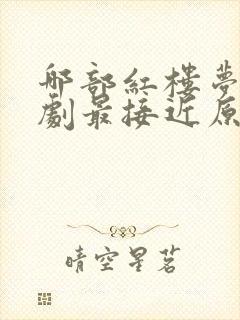 那部紅樓夢
劇最接近原
晴空星茗